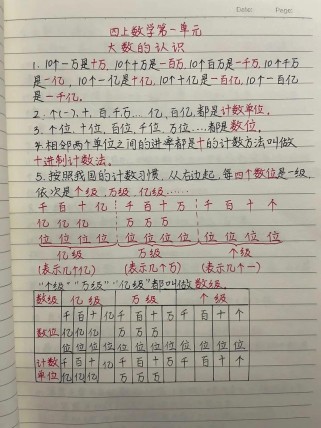 Date: Page:
四上数学第一单元
大数的认识
1. 10个一万是十万, 10个十万是一百万, 10个百万是一千万, 10个千万
是一亿, 10个一亿是十亿, 10个十亿是一百亿, 10个一百亿
是一千亿。
2. 个(一)、十、百、千、万…亿、百亿,都是计数单位。
3. 个位、十位、百位、千位、万位…都是数位。
4. 相邻两个单位之间的进率都是十的计数方法叫做
十进制计数法。
5. 按照我国的计数习惯,从右边起,每四个数位是一级,
依次是个级、万级、亿级……
千 百 十 亿 千 百 十 万 千 百 十 个
亿 亿 亿 万 万 万
位 位 位 位 位 位 位 位 位 位 位 位
亿级 万级 个级
(表示几个亿) (表示几个万) (表示几个一)
“个级”“万级”“亿级”都叫做数级。
数级 亿级 万级 个级
千 百 十 亿 千 百 十 万 千 百 十 个
数位 亿 亿 亿 万 万 万
位 位 位 位 位 位 位 位 位 位 位 位
计数 千 百 十 亿 千 百 十 万 千 百 十 个
单位 亿 亿 亿 万 万 万